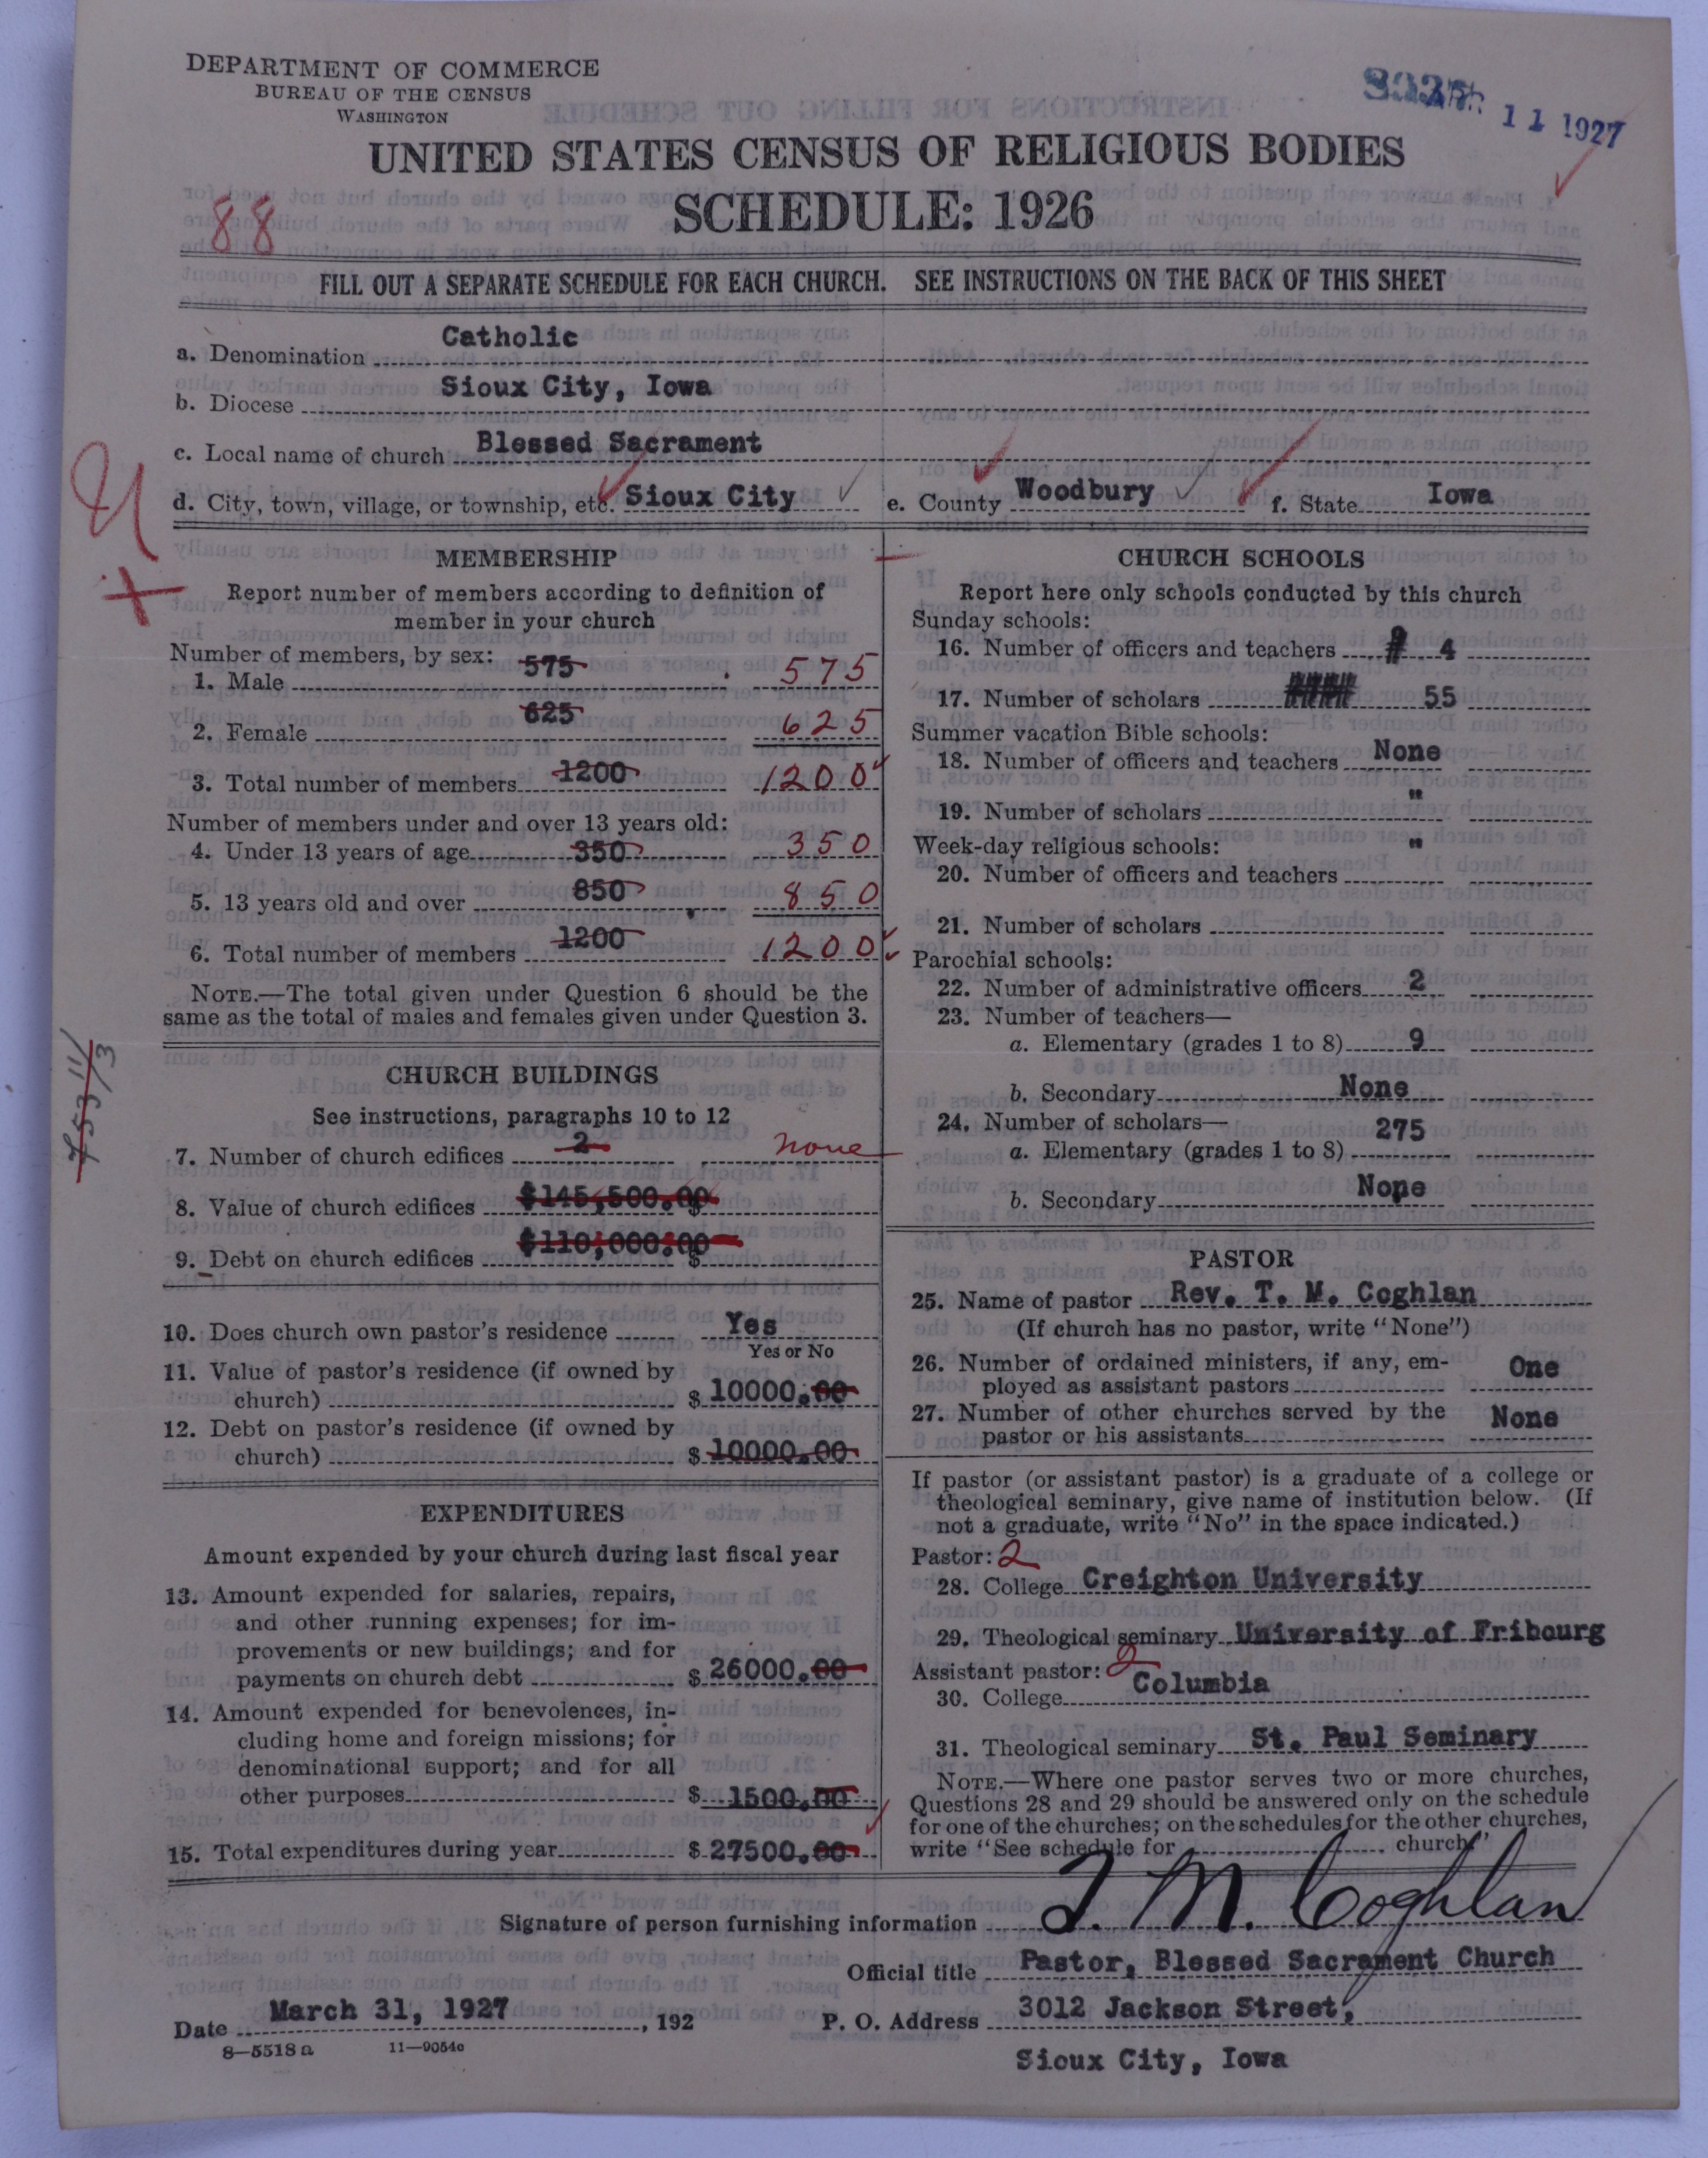 DEPARTMENT OF COMMERCE
BUREAU OF THE CENSUS
WASHINGTON
11 1927
UNITED STATES CENSUS OF RELIGIOUS BODIES
SCHEDULE: 1926
88
FILL OUT A SEPARATE SCHEDULE FOR EACH CHURCH. SEE INSTRUCTIONS ON THE BACK OF THIS SHEET
a. Denomination Catholic
b. Diocese Sioux City, Iowa
c. Local name of church Blessed Sacrament
d. City, town, village, or township, etc. Sioux City e. County Woodbury f. State Iowa
MEMBERSHIP
Report number of members according to definition of
member in your church
Number of members, by sex:
1. Male 575 575
2. Female 625 625
3. Total number of members 1200 1200
Number of members under and over 13 years old:
4. Under 13 years of age 350 350
5. 13 years old and over 850 850
6. Total number of members 1200 1200
NOTE.—The total given under Question 6 should be the
same as the total of males and females given under Question 3.
CHURCH BUILDINGS
See instructions, paragraphs 10 to 12
7. Number of church edifices 2 none
8. Value of church edifices $145,500.00
9. Debt on church edifices $110,000.00
10. Does church own pastor's residence Yes
Yes or No
11. Value of pastor's residence (if owned by
church) $ 10000.00
12. Debt on pastor's residence (if owned by
church) $ 10000.00
EXPENDITURES
Amount expended by your church during last fiscal year
13. Amount expended for salaries, repairs,
and other running expenses; for im-
provements or new buildings; and for
payments on church debt $ 26000.00
14. Amount expended for benevolences, in-
cluding home and foreign missions; for
denominational support; and for all
other purposes $ 1500.00
15. Total expenditures during year $ 27500.00
CHURCH SCHOOLS
Report here only schools conducted by this church
Sunday schools:
16. Number of officers and teachers 4
17. Number of scholars 55
Summer vacation Bible schools:
18. Number of officers and teachers None
19. Number of scholars "
Week-day religious schools: "
20. Number of officers and teachers
21. Number of scholars
Parochial schools:
22. Number of administrative officers 2
23. Number of teachers—
a. Elementary (grades 1 to 8) 9
b. Secondary None
24. Number of scholars— 275
a. Elementary (grades 1 to 8)
b. Secondary None
PASTOR
25. Name of pastor Rev. T. M. Coghlan
(If church has no pastor, write "None")
26. Number of ordained ministers, if any, em-
ployed as assistant pastors One
27. Number of other churches served by the
pastor or his assistants None
If pastor (or assistant pastor) is a graduate of a college or
theological seminary, give name of institution below. (If
not a graduate, write "No" in the space indicated.)
Pastor: 2
28. College Creighton University
29. Theological seminary University of Fribourg
Assistant pastor: 2
30. College Columbia
31. Theological seminary St. Paul Seminary
NOTE.—Where one pastor serves two or more churches,
Questions 28 and 29 should be answered only on the schedule
for one of the churches; on the schedules for the other churches,
write "See schedule for church"
Signature of person furnishing information T. M. Coghlan
Official title Pastor, Blessed Sacrament Church
Date March 31, 1927, 192 P. O. Address 3012 Jackson Street,
8—5518 a 11—9054c
Sioux City, Iowa